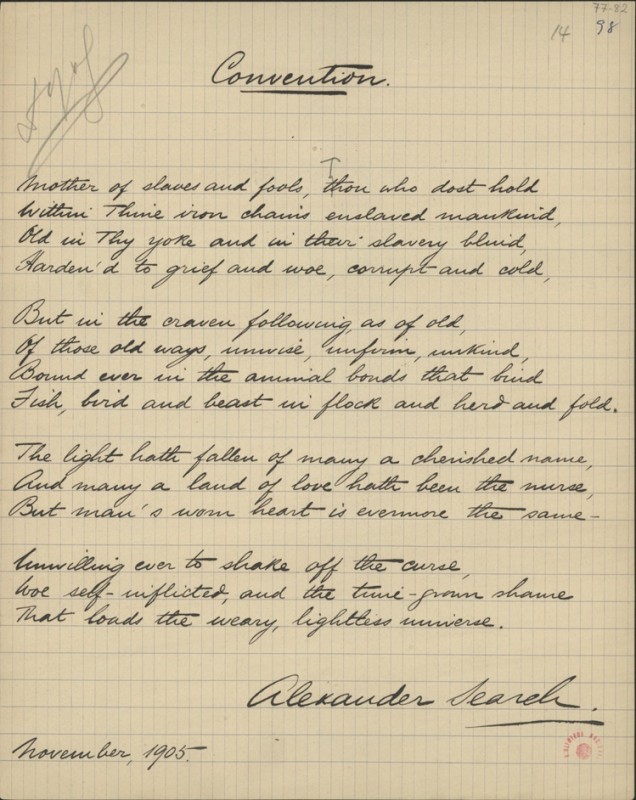 77-82
14 98
Convention.
T
Mother of slaves and fools, thou who dost hold
Within Thine iron chains enslaved mankind,
Old in Thy yoke and in their slavery blind,
Harden'd to grief and woe, corrupt and cold,
But in the craven following, as of old,
Of those old ways, unwise, unfirm, unkind,
Bound ever in the animal bonds that bind
Fish, bird and beast in flock and herd and fold.
The light hath fallen of many a cherished name,
And many a land of love hath been the nurse,
But man's worn heart is evermore the same —
Unwilling ever to shake off the curse,
Woe self-inflicted, and the time-grown shame
That loads the weary, lightless universe.
Alexander Search.
November, 1905.